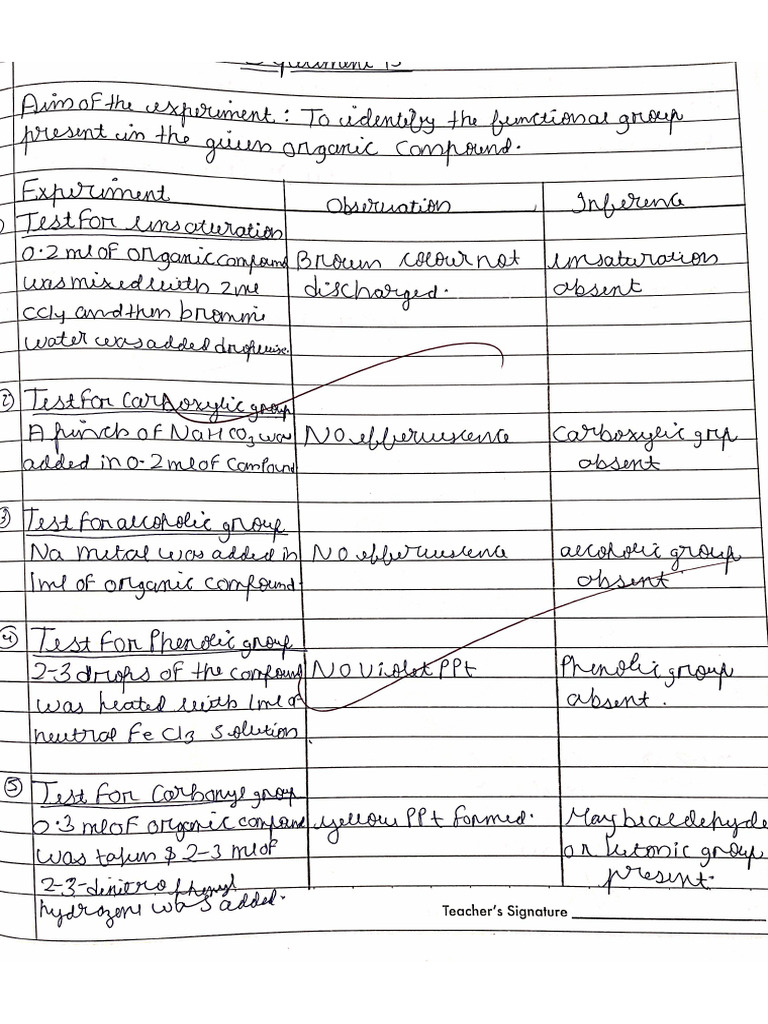 Experiment 13
Aim of the experiment : To identify the functional group
present in the given organic compound.
Experiment Observation Inference
Test For Unsaturation
0.2 ml of organic compound Brown colour not unsaturation
was mixed with 2ml discharged. absent
CCl4 and then bromine
water was added dropwise.
2) Test for Carboxylic group
A pinch of NaHCO3 was NO effervescence Carboxylic grp
added in 0.2 ml of compound absent
3) Test for alcoholic group
Na metal was added in NO effervescence alcoholic group
1ml of organic compound absent
4) Test for Phenolic group
2-3 drops of the compound NO Violet PPt Phenolic group
was heated with 1ml of absent.
neutral FeCl3 solution
5) Test for Carbonyl group
0.3 ml of organic compound yellow PPt formed. May be aldehyde
was taken & 2-3 ml of or ketonic group
2-3-dinitrophenyl present.
hydrozene was added.
Teacher's Signature